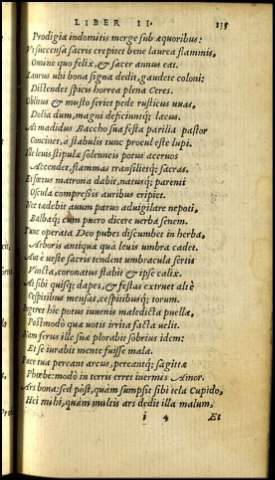 LIBER II.
235
Prodigia indomitis merge sub æquoribus:
Vt succensa sacris crepitet bene laurea flammis,
Omine quo felix, & sacer annus eat.
Laurus ubi bona signa dedit, gaudete coloni:
Distendet spicis horrea plena Ceres.
Oblitus & musto feriet pede rusticus uuas,
Dolia dum, magni deficiuntq; lacus.
At madidus Baccho sua festa parilia pastor
Concinet, à stabulis tunc procul este lupi.
Ille leuis stipulæ solenneis potus aceruos
Accendet, flammas transilietq; sacras.
Et fœtus matrona dabit, natusq; parenti
Oscula compreßis auribus eripiet.
Nec tædebit auum paruo aduigilare nepoti,
Balbaq; cum puero dicere uerba senem.
Tunc operata Deo pubes discumbet in herba,
Arboris antiquæ quà leuis umbra cadet.
Aut è ueste sacras tendent umbracula sertis
Vincta, coronatus stabit & ipse calix.
At sibi quisq; dapes, & festas extruet altè
Cespitibus mensas, cespitibusq; torum.
Ingeret hic potus iuuenis maledicta puellæ,
Postmodò quæ uotis irrita facta uelit.
Nam ferus ille suæ plorabit sobrius idem:
Et se iurabit mente fuisse mala.
Pace tua pereant arcus, pereantq; sagittæ
Phœbe: modò in terris erret inermis Amor.
Ars bona: sed pòst, quàm sumpsit sibi tela Cupido,
Hei mihi, quàm multis ars dedit illa malum,
i 4
Et